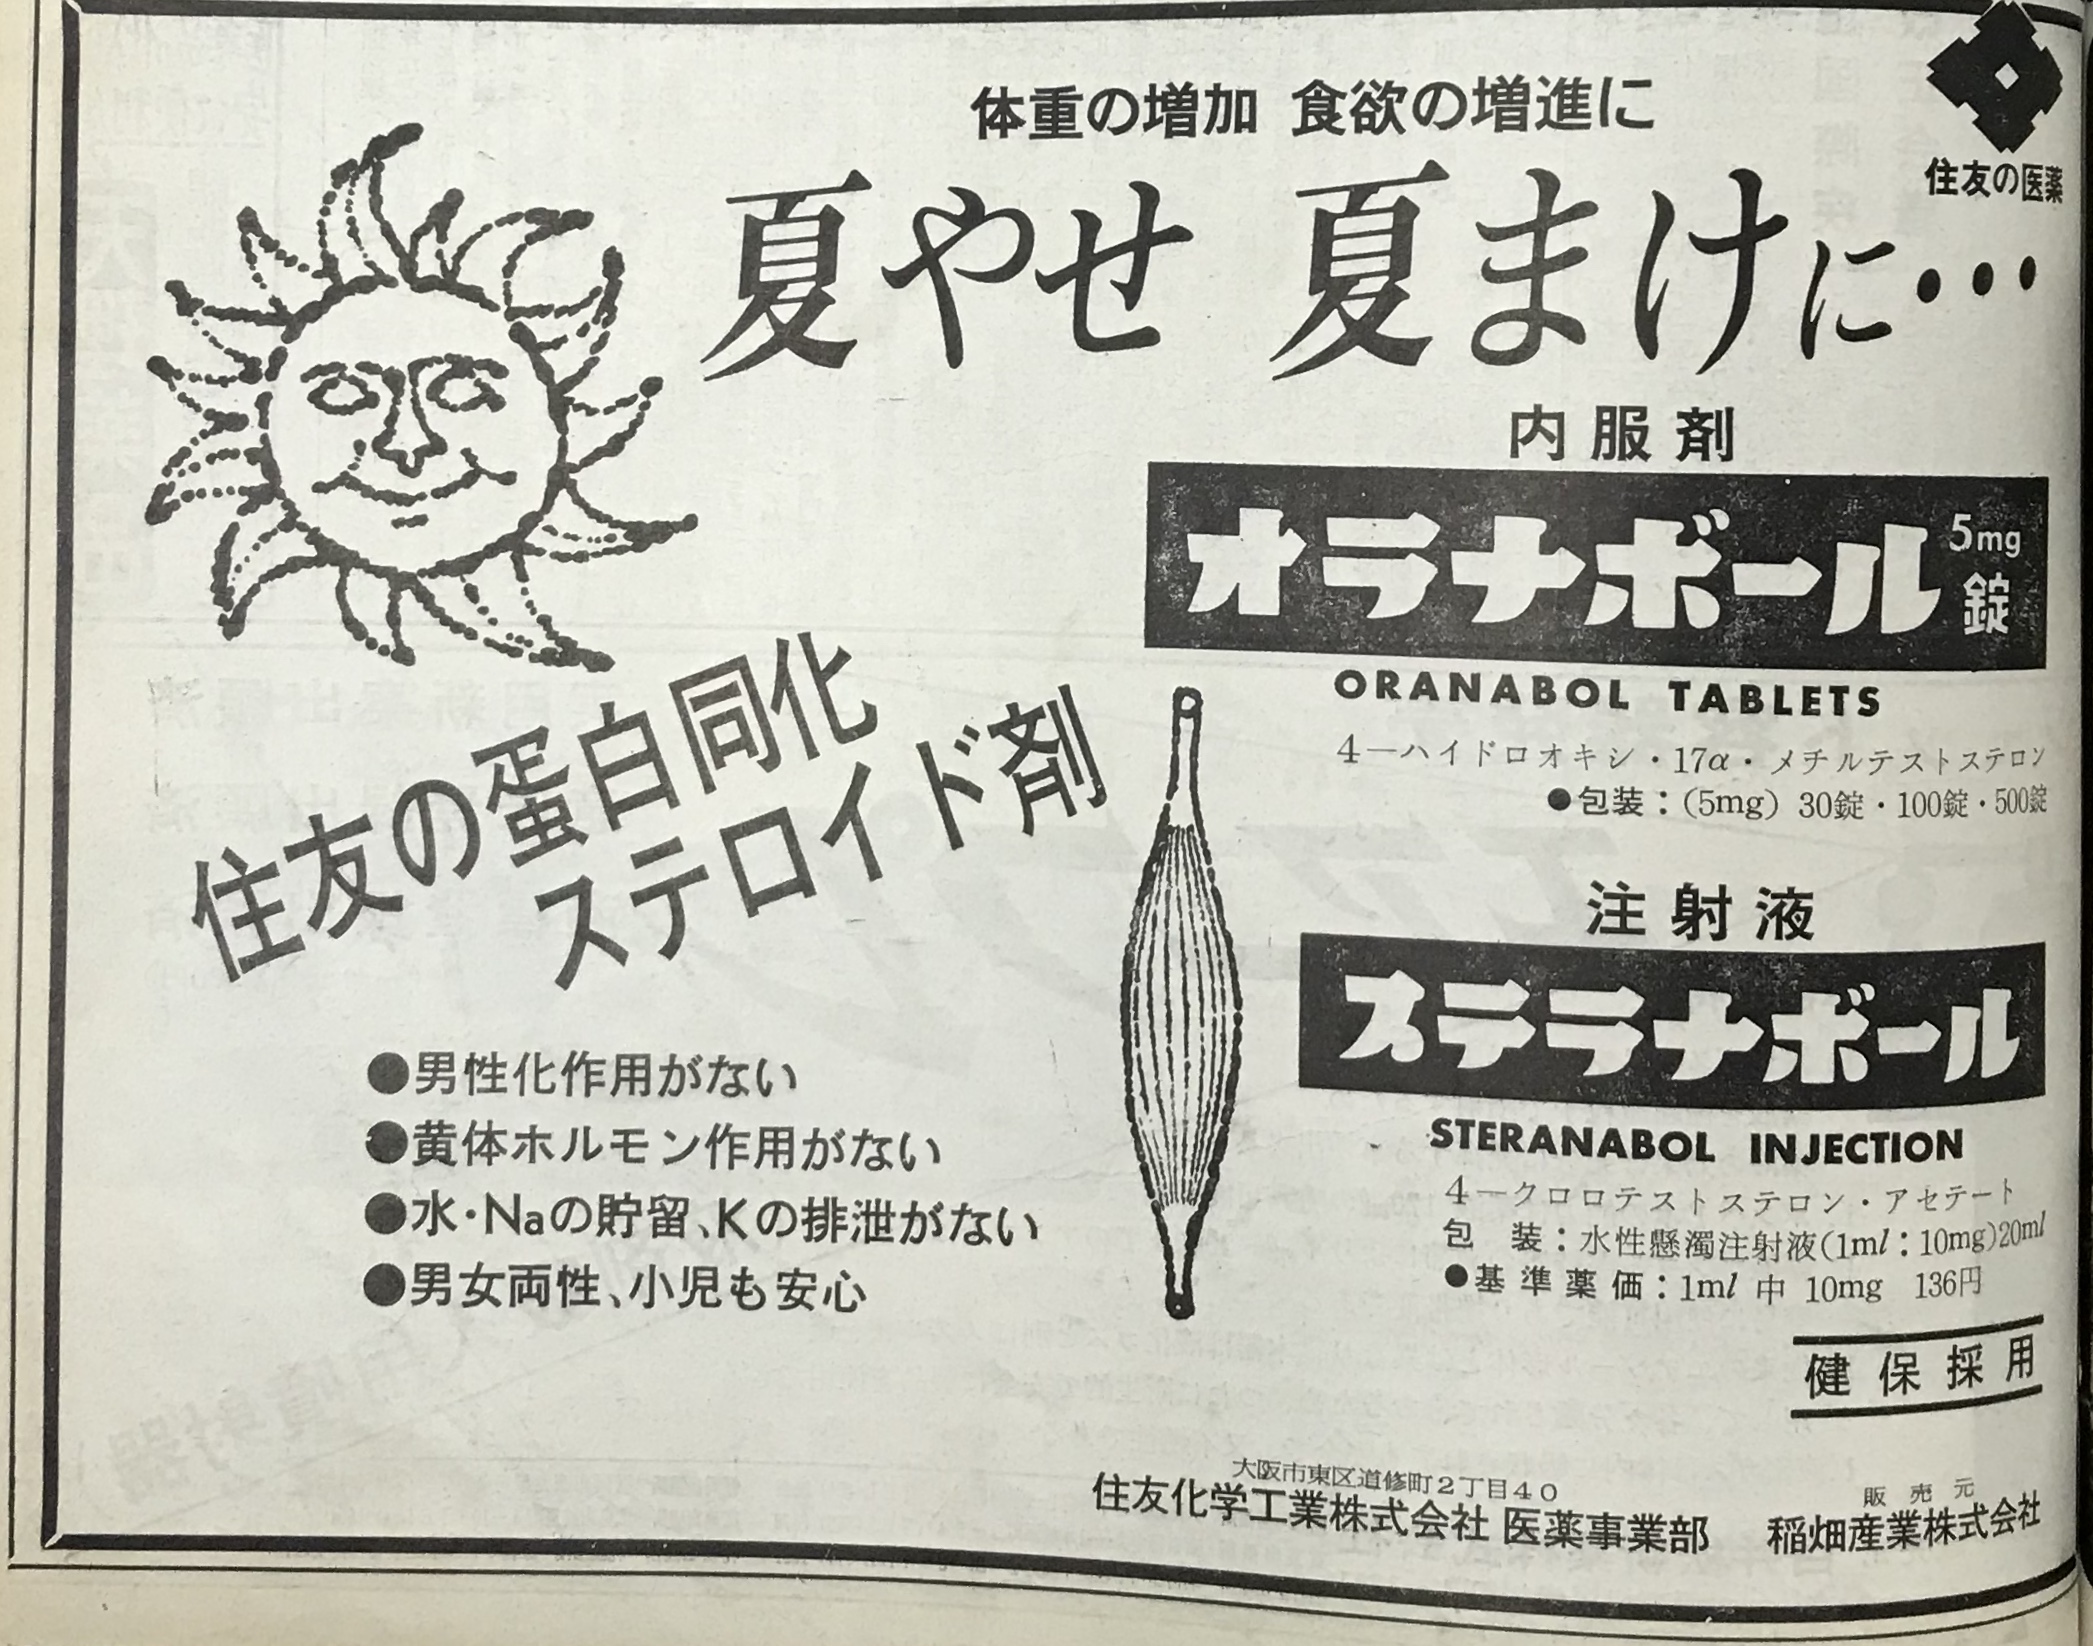 体重の増加 食欲の増進に
住友の医薬
夏やせ 夏まけに…
内服剤
オラナボール 5mg錠
ORANABOL TABLETS
4―ハイドロオキシ・17α・メチルテストステロン
●包装：(5mg) 30錠・100錠・500錠
住友の蛋白同化
ステロイド剤
注射液
ステラナボール
STERANABOL INJECTION
4―クロロテストステロン・アセテート
包 装：水性懸濁注射液(1ml：10mg)20ml
●基準薬価：1ml 中 10mg 136円
●男性化作用がない
●黄体ホルモン作用がない
●水・Naの貯留、Kの排泄がない
●男女両性、小児も安心
健保採用
大阪市東区道修町2丁目40
住友化学工業株式会社 医薬事業部
販売元
稲畑産業株式会社